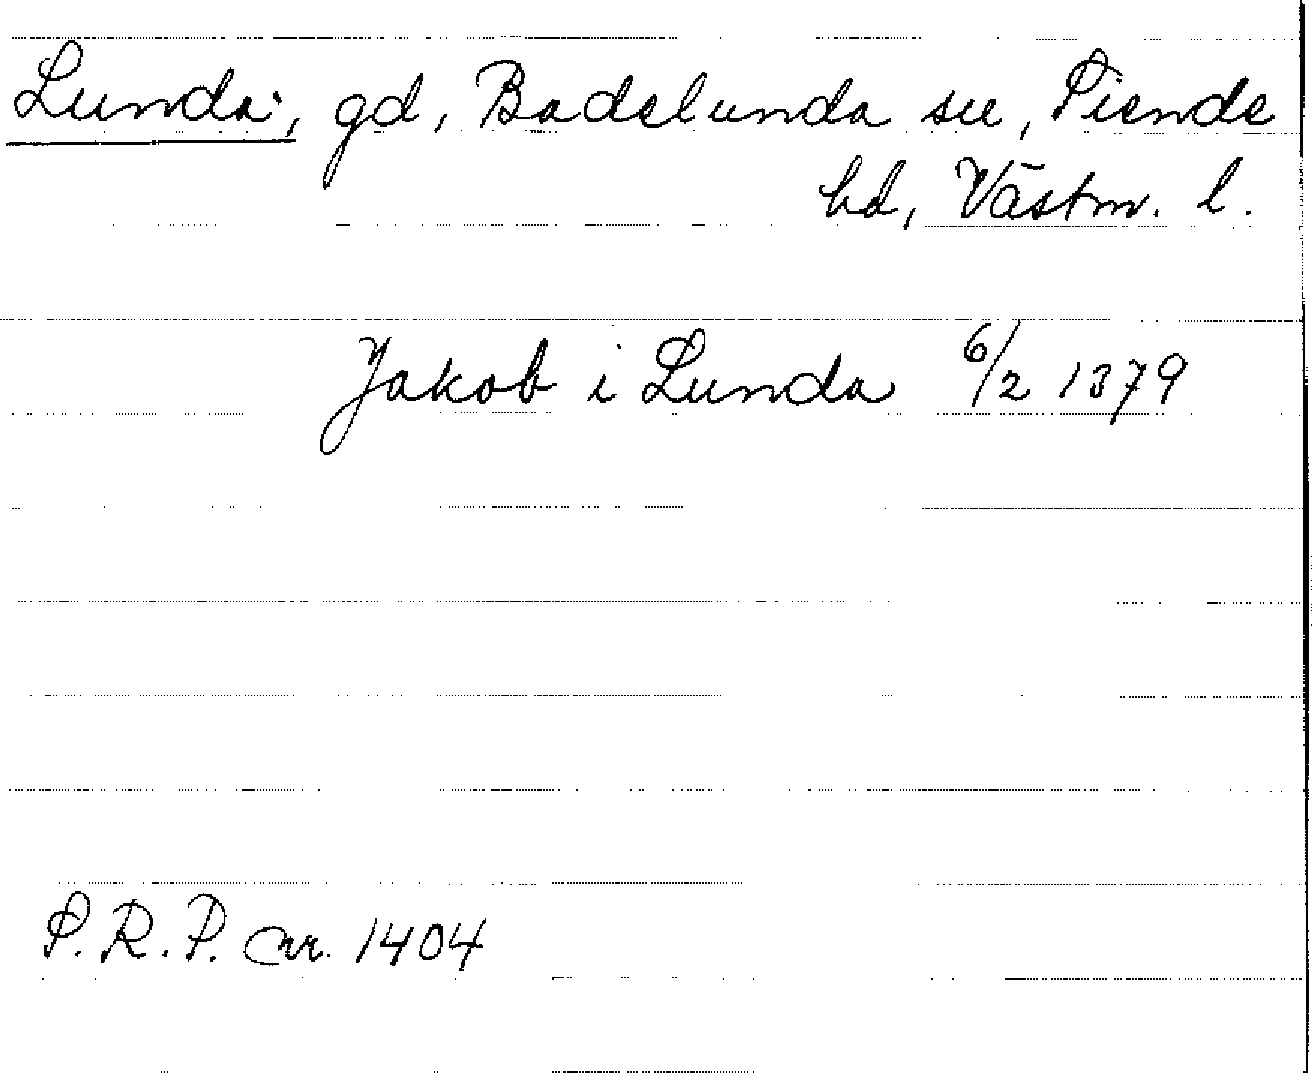 Lunda, gd, Badelunda sn, Siende
hd, Västm. l.
Jakob i Lunda 6/2 1379
S.R.P. nr. 1404